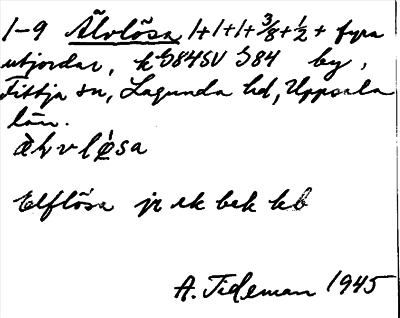 1-9 Älvlösa 1+1+1+3/8+1/2+ fyra
utjordar, k 984SV 984 by,
Fittja sn, Lagunda hd, Uppsala
län.
Elflösa jr ek bek kb
A. Tideman 1945